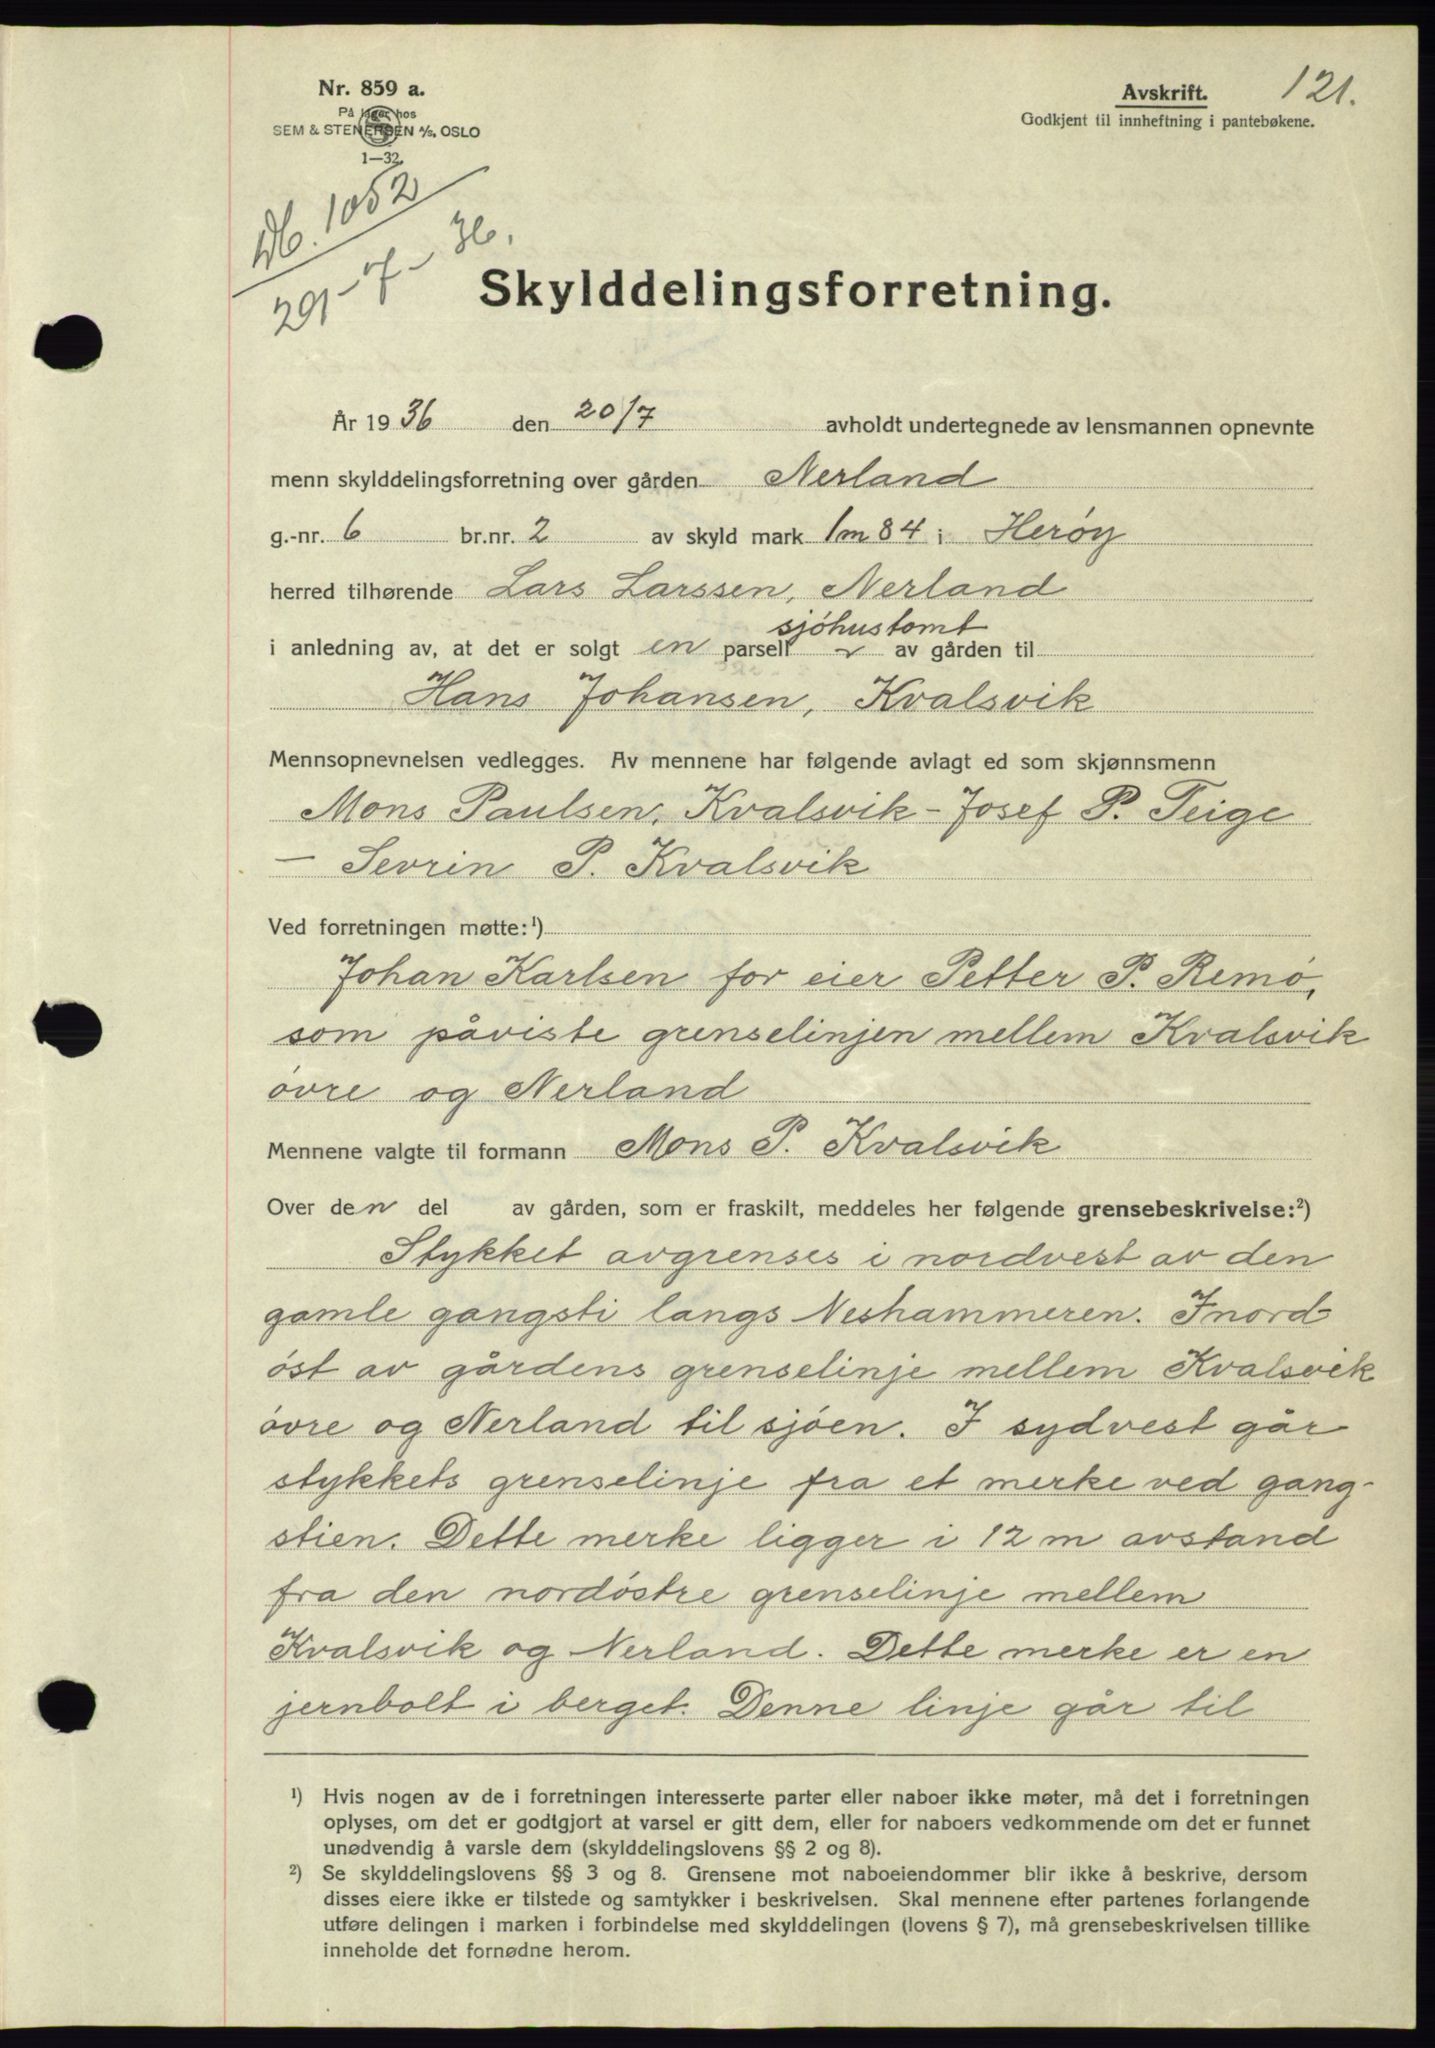 Nr. 859 a.
På lager hos
SEM & STENERSEN A/S, OSLO
1—32.
Avskrift.
Godkjent til innheftning i pantebøkene.
121.
Db. 1052
29-7-36.
Skylddelingsforretning.
År 1936 den 20/7 avholdt undertegnede av lensmannen opnevnte
menn skylddelingsforretning over gården Nerland
g.-nr. 6 br.nr. 2 av skyld mark 1m84 i Herøy
herred tilhørende Lars Larssen, Nerland
sjöhustomt
i anledning av, at det er solgt en parsell av gården til
Hans Johansen, Kvalsvik
Mennsopnevnelsen vedlegges. Av mennene har følgende avlagt ed som skjønnsmenn
Mons Paulsen, Kvalsvik - Josef P. Teige
- Sevrin P. Kvalsvik
Ved forretningen møtte:¹)
Johan Karlsen for eier Petter P. Remö,
som påviste grenselinjen mellem Kvalsvik
övre og Nerland
Mennene valgte til formann Mons P. Kvalsvik
Over den del av gården, som er fraskilt, meddeles her følgende grensebeskrivelse:²)
Stykket avgrenses i nordvest av den
gamle gangsti langs Neshammeren. I nord-
öst av gårdens grenselinje mellem Kvalsvik
övre og Nerland til sjöen. I sydvest går
stykkets grenselinje fra et merke ved gang-
stien. Dette merke ligger i 12 m avstand
fra den nordöstre grenselinje mellem
Kvalsvik og Nerland. Dette merke er en
jernbolt i berget. Denne linje går til
¹) Hvis nogen av de i forretningen interesserte parter eller naboer ikke møter, må det i forretningen
oplyses, om det er godtgjort at varsel er gitt dem, eller for naboers vedkommende om det er funnet
unødvendig å varsle dem (skylddelingslovens §§ 2 og 8).
²) Se skylddelingslovens §§ 3 og 8. Grensene mot naboeiendommer blir ikke å beskrive, dersom
disses eiere ikke er tilstede og samtykker i beskrivelsen. Skal mennene efter partenes forlangende
utføre delingen i marken i forbindelse med skylddelingen (lovens § 7), må grensebeskrivelsen tillike
inneholde det fornødne herom.